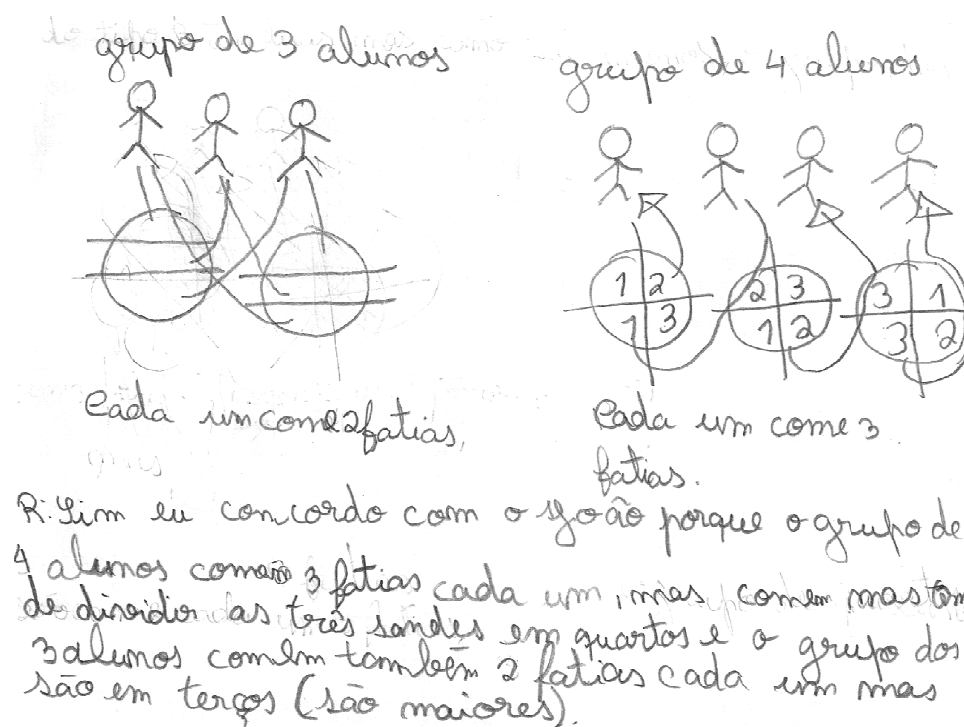 grupo de 3 alunos
grupo de 4 alunos
1 2
1 3
2 3
1 2
3 1
3 2
Cada um come 2 fatias,
Cada um come 3
fatias.
R: Sim eu concordo com o João porque o grupo de
4 alunos comem 3 fatias cada um, mas comem mas têm
de dividir as três sandes em quartos e o grupo dos
3 alunos comem também 2 fatias cada um mas
são em terços (são maiores).